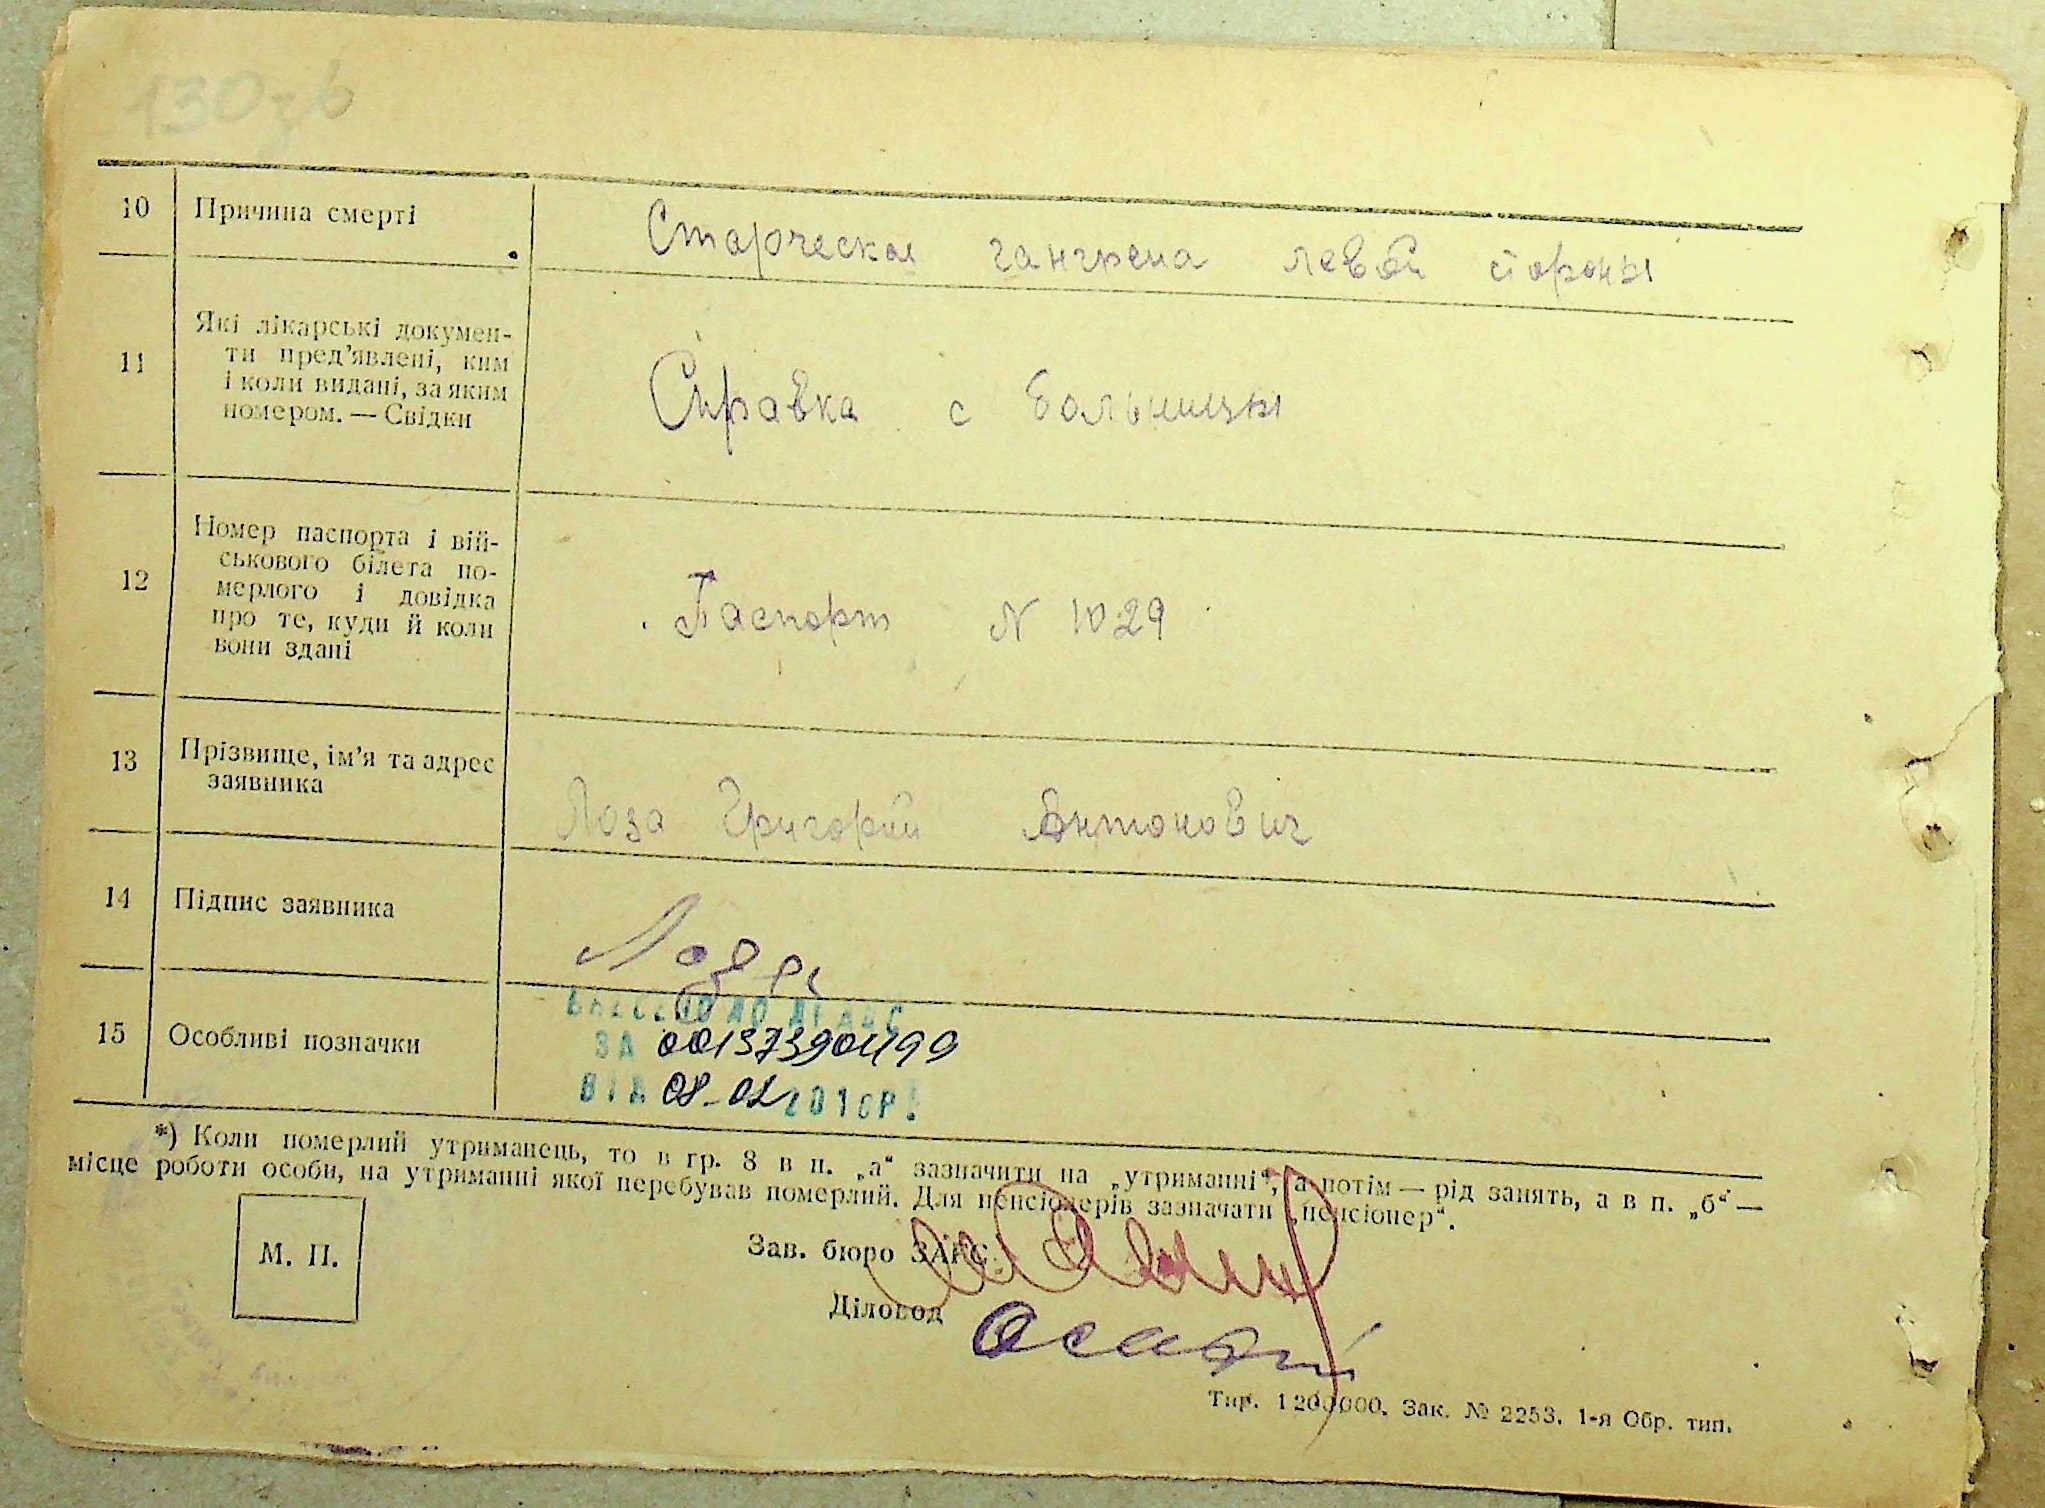 130зв
10 Причина смерті Старческая гангрена левой стороны
11 Які лікарські докумен-
ти пред'явлені, ким
і коли видані, за яким
номером. — Свідки
Справка с больницы
12 Номер паспорта і вій-
ськового білета по-
мерлого і довідка
про те, куди й коли
вони здані
Паспорт N 1029
13 Прізвище, ім'я та адрес
заявника
Лоза Григорий Антонович
14 Підпис заявника Лоза
15 Особливі позначки
ВНЕСЕНО ДО ДРАЦС
ЗА 00137390499
ВІД 08-02 2010Р.
*) Коли померлий утриманець, то в гр. 8 в п. „а“ зазначити на „утриманні“, а потім — рід занять, а в п. „б“ —
місце роботи особи, на утриманні якої перебував померлий. Для пенсіонерів зазначати „пенсіонер“.
М. П.
Зав. бюро ЗАГС
Діловод
Тир. 1 200 000. Зак. № 2253. 1-я Обр. тип.